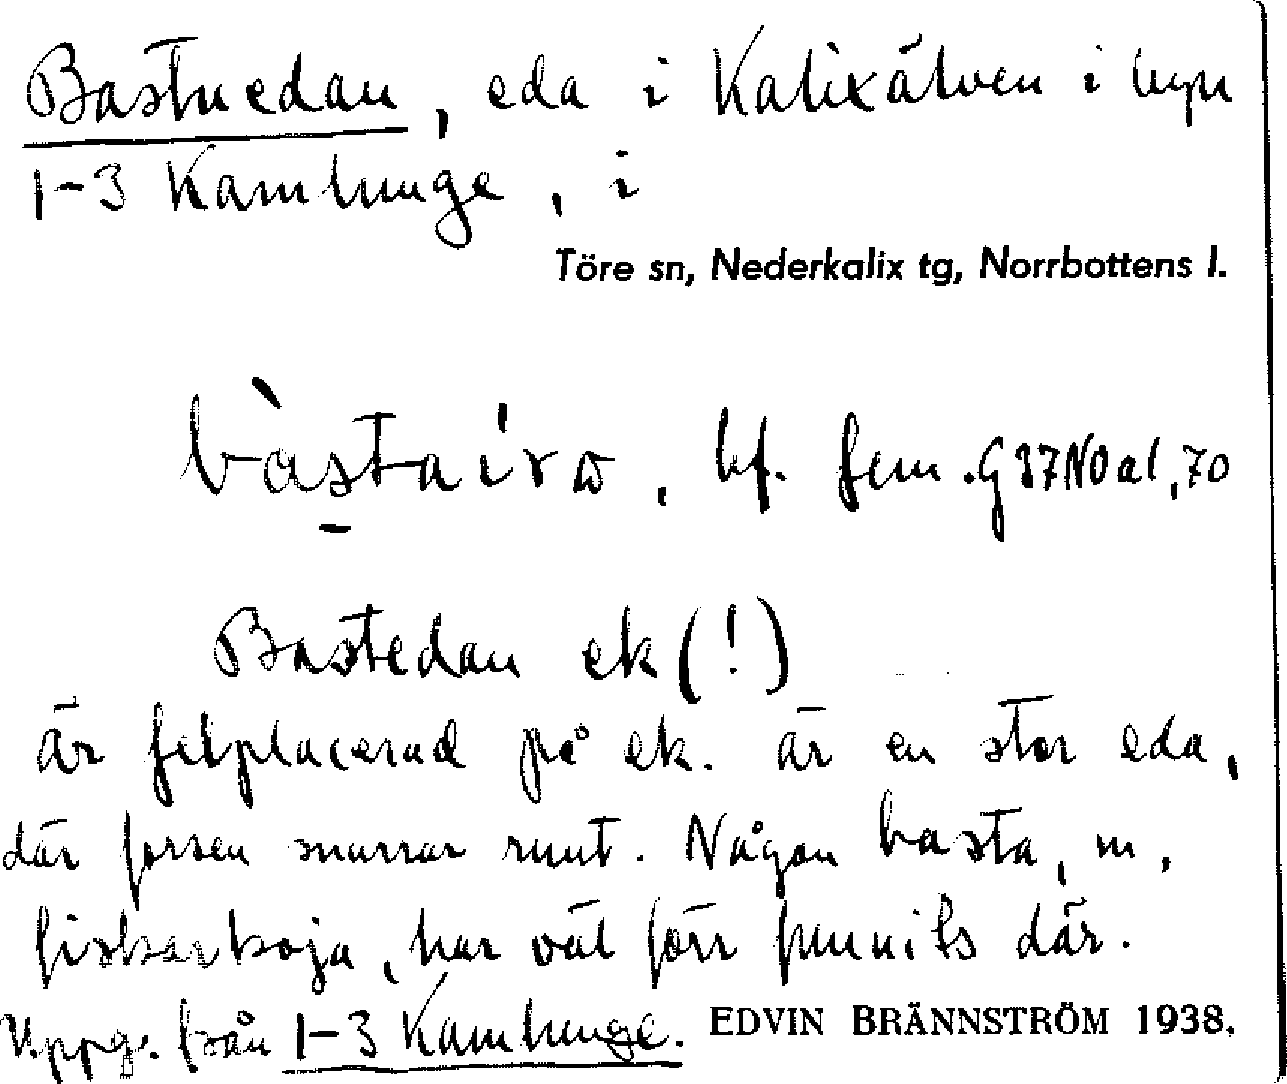 Bastuedan, eda i Kalixälven i byn
1-3 Kamlunge, i
Töre sn, Nederkalix tg, Norrbottens l.
bf. fem. G37NO al, 70
Bastedan ek (!)
är felplacerad på ek. är en stor eda,
där forsen snurrar runt. Någon basta, m,
fiskarkoja, har väl förr funnits där.
Uppg. från 1-3 Kamlunge. EDVIN BRÄNNSTRÖM 1938.